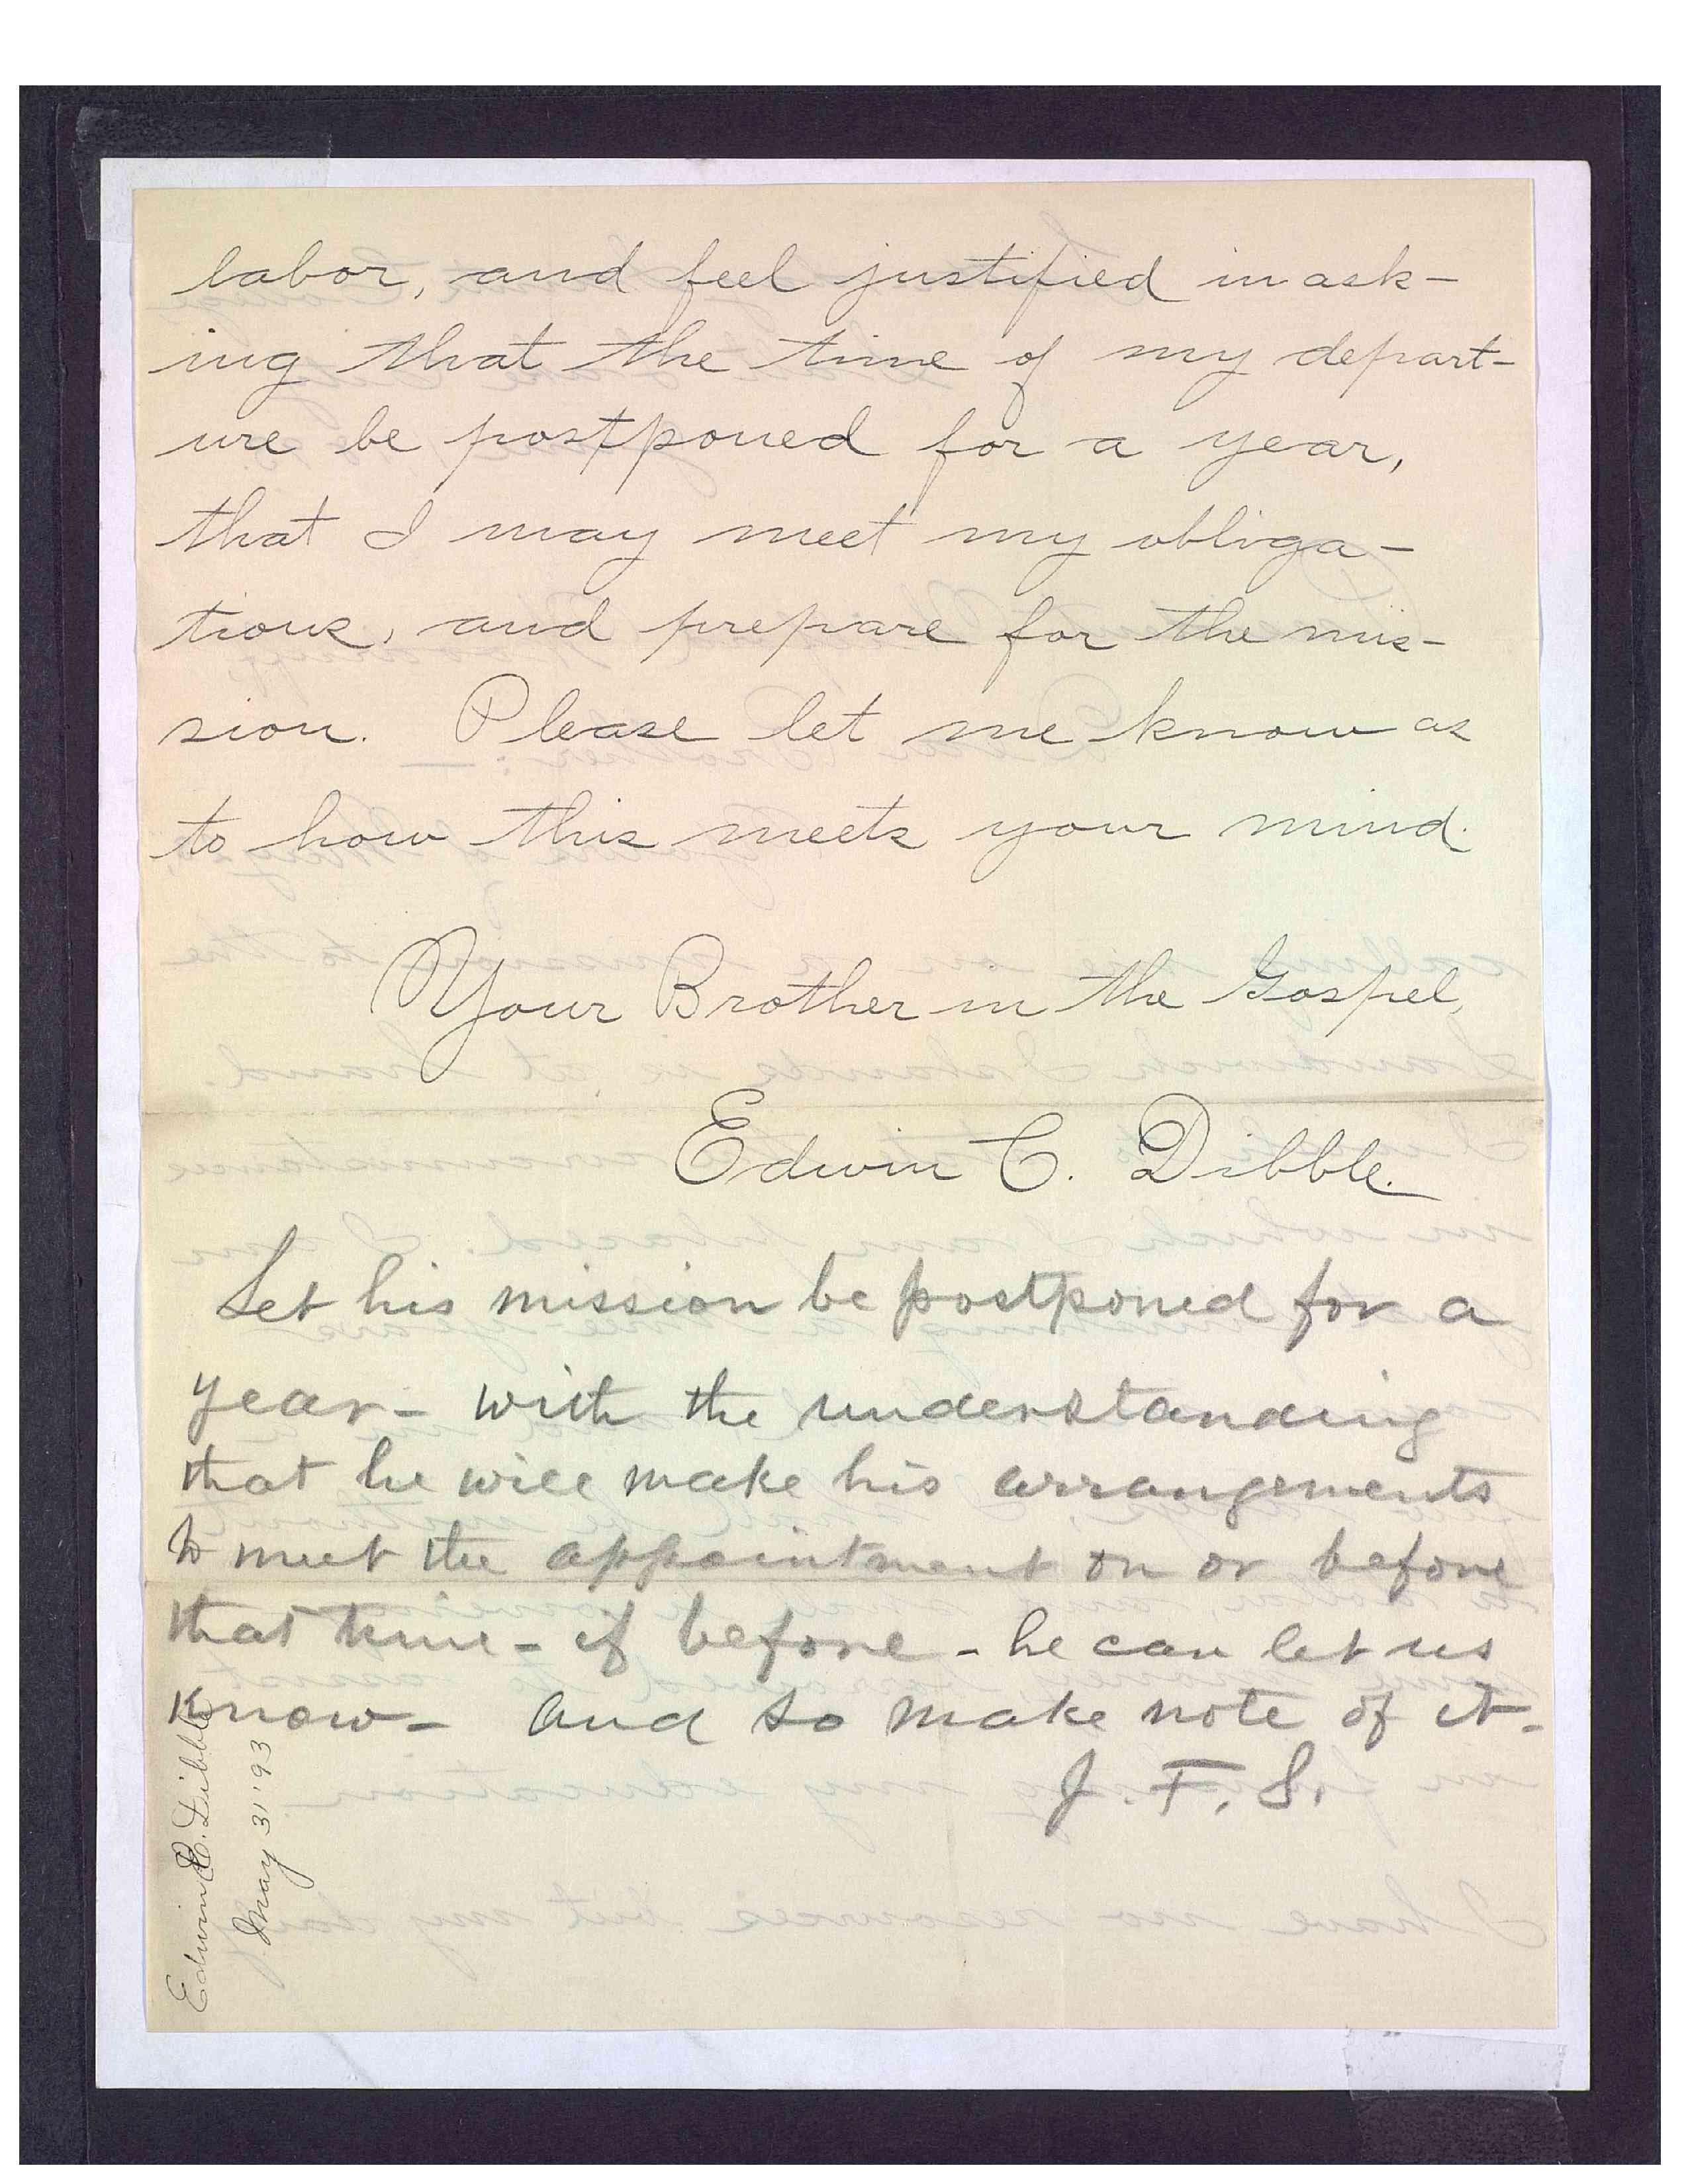 labor, and feel justified in ask-
ing that the time of my depart-
ure be postponed for a year,
that I may meet my obliga-
tions, and prepare for the mis-
sion. Please let me know as
to how this meets your mind.
Your Brother in the Gospel,
Edwin C. Dibble.
Let his mission be postponed for a
year - with the understanding
that he will make his arrangements
to meet the appointment on or before
that time - if before - he can let us
know - and so make note of it -
J. F. S.
Edwin C. Dibble
May 31 '93